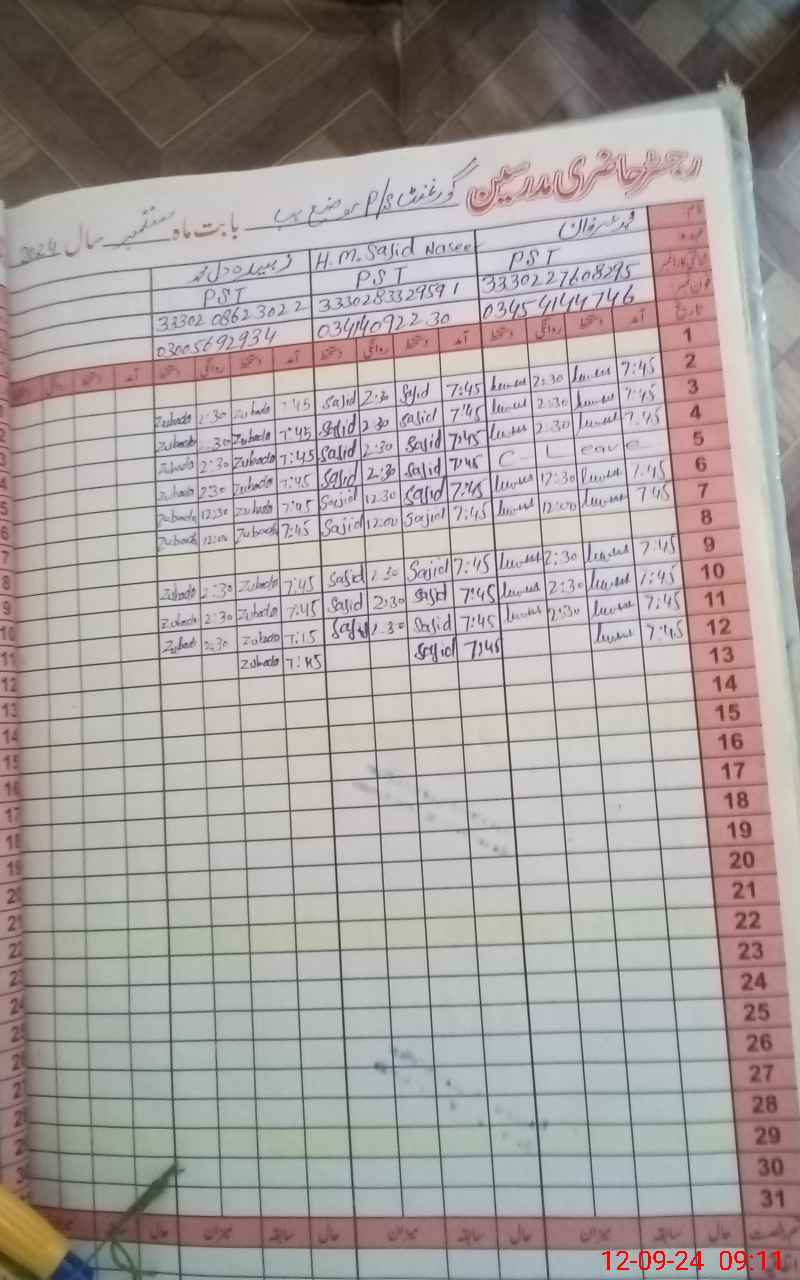 رجسٹر حاضری مدرسین گورنمنٹ P/S موضع بابت ماہ ستمبر سال 2024
نام H.M. Sajid Naseer زبیدہ دل محمد
عہدہ PST PST PST
شناختی کارڈ نمبر 3330227608295 3330283329591 3330208623022
فون نمبر 03454144746 03005692934
تاریخ آمد دستخط روانگی دستخط آمد دستخط روانگی دستخط آمد دستخط روانگی دستخط آمد دستخط روانگی دستخط
1
2 7:45 2:30 7:45 Sajid 2:30 Sajid 7:45 Zubada 2:30 Zubada
3 7:45 2:30 7:45 Sajid 2:30 Sajid 7:45 Zubada 2:30 Zubada
4 7:45 2:30 7:45 Sajid 2:30 Sajid 7:45 Zubada 2:30 Zubada
5 C - Leave 7:45 Sajid 2:30 Sajid 7:45 Zubada 2:30 Zubada
6 7:45 12:30 7:45 Sajid 12:30 Sajid 7:45 Zubada 12:30 Zubada
7 7:45 12:00 7:45 Sajid 12:00 Sajid 7:45 Zubada 12:00 Zubada
8
9 7:45 2:30 7:45 Sajid 2:30 Sajid 7:45 Zubada 2:30 Zubada
10 7:45 2:30 7:45 Sajid 2:30 Sajid 7:45 Zubada 2:30 Zubada
11 7:45 2:30 7:45 Sajid 2:30 Sajid 7:15 Zubada 2:30 Zubada
12 7:45 7:45 Sajid 7:45 Zubada
13
14
15
16
17
18
19
20
21
22
23
24
25
26
27
28
29
30
31
حال سابقہ میزان حال سابقہ میزان حال سابقہ میزان حال
12-09-24 09:11